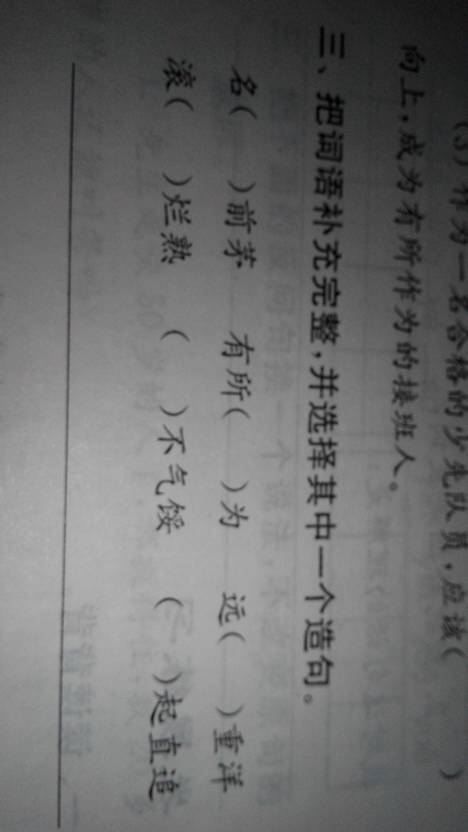 (3)作为一名合格的少先队员,应该(    )
向上,成为有所作为的接班人。
三、把词语补充完整,并选择其中一个造句。
名(    )前茅 有所(    )为 远(    )重洋
滚(    )烂熟 (    )不气馁 (    )起直追